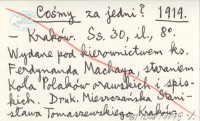 Cośmy za jedni? 1914.
– Kraków. Ss. 30, il., 8°.
Wydane pod kierownictwem ks.
Ferdynanda Machaya, staraniem
Koła Polaków orawskich i spis-
kich. Druk. Mieszczańska Stani-
sława Tomaszewskiego. Kraków.